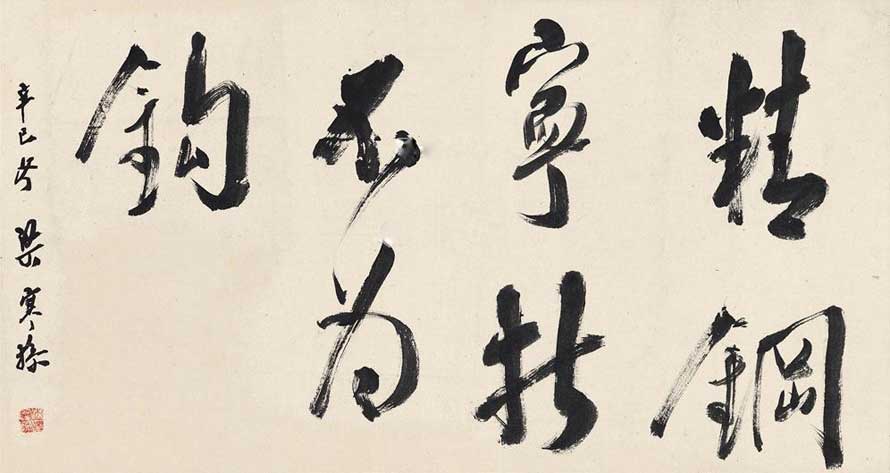 精鋼
寧折
不為
鈎
辛巳 梁寒操